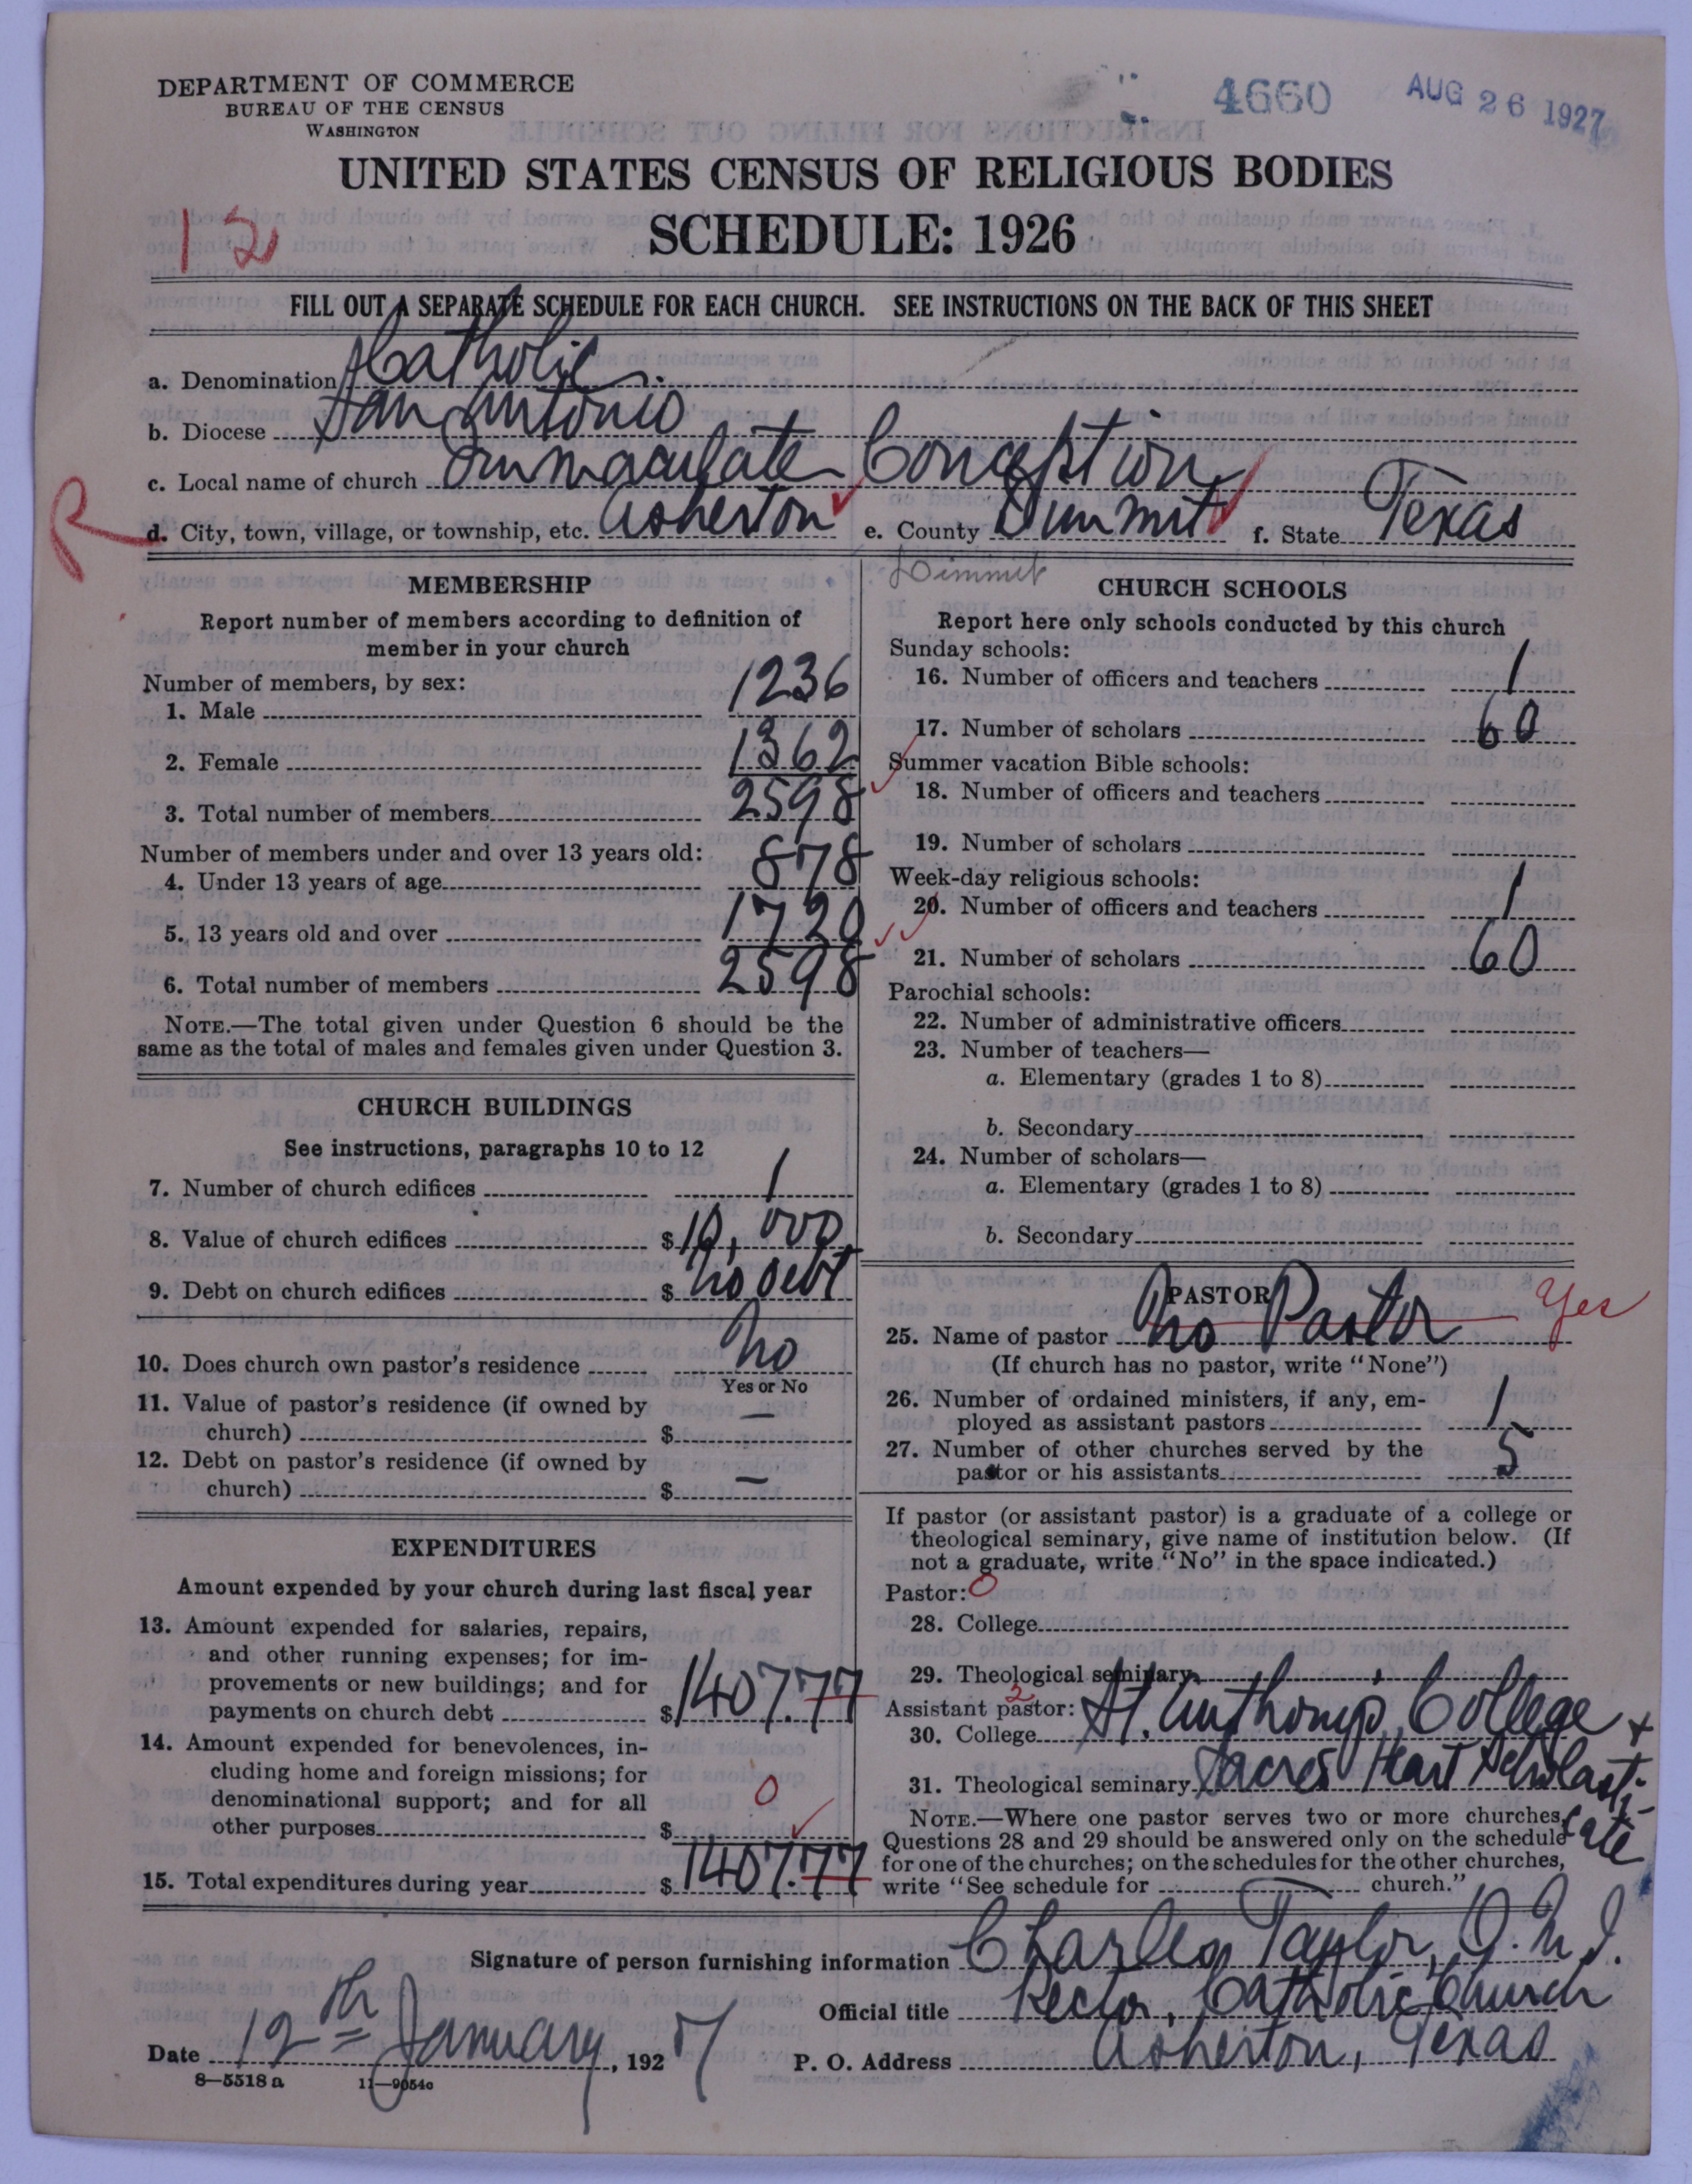 DEPARTMENT OF COMMERCE
BUREAU OF THE CENSUS
WASHINGTON
4660 AUG 26 1927
UNITED STATES CENSUS OF RELIGIOUS BODIES
SCHEDULE: 1926
12
FILL OUT A SEPARATE SCHEDULE FOR EACH CHURCH. SEE INSTRUCTIONS ON THE BACK OF THIS SHEET
a. Denomination Catholic.
b. Diocese San Antonio
c. Local name of church Immaculate Conception
R
d. City, town, village, or township, etc. Asherton e. County Dummit f. State Texas
Dimmit
MEMBERSHIP
Report number of members according to definition of
member in your church
Number of members, by sex:
1. Male 1236
2. Female 1362
3. Total number of members 2598
Number of members under and over 13 years old:
4. Under 13 years of age 878
5. 13 years old and over 1720
6. Total number of members 2598
NOTE.—The total given under Question 6 should be the
same as the total of males and females given under Question 3.
CHURCH BUILDINGS
See instructions, paragraphs 10 to 12
7. Number of church edifices 1
8. Value of church edifices $10,000
9. Debt on church edifices $ no debt
10. Does church own pastor's residence no
Yes or No
11. Value of pastor's residence (if owned by
church) $ —
12. Debt on pastor's residence (if owned by
church) $ —
EXPENDITURES
Amount expended by your church during last fiscal year
13. Amount expended for salaries, repairs,
and other running expenses; for im-
provements or new buildings; and for
payments on church debt $1407.77
14. Amount expended for benevolences, in-
cluding home and foreign missions; for
denominational support; and for all
other purposes $ 0
15. Total expenditures during year $1407.77
CHURCH SCHOOLS
Report here only schools conducted by this church
Sunday schools:
16. Number of officers and teachers 1
17. Number of scholars 60
Summer vacation Bible schools:
18. Number of officers and teachers
19. Number of scholars
Week-day religious schools:
20. Number of officers and teachers 1
21. Number of scholars 60
Parochial schools:
22. Number of administrative officers
23. Number of teachers—
a. Elementary (grades 1 to 8)
b. Secondary
24. Number of scholars—
a. Elementary (grades 1 to 8)
b. Secondary
PASTOR
25. Name of pastor No Pastor Yes
(If church has no pastor, write "None")
26. Number of ordained ministers, if any, em-
ployed as assistant pastors 1
27. Number of other churches served by the
pastor or his assistants 5
If pastor (or assistant pastor) is a graduate of a college or
theological seminary, give name of institution below. (If
not a graduate, write "No" in the space indicated.)
Pastor: 0
28. College
29. Theological seminary
Assistant pastor: 2
30. College St. Anthony College +
31. Theological seminary Sacred Heart Scholasti-
cate
NOTE.—Where one pastor serves two or more churches,
Questions 28 and 29 should be answered only on the schedule
for one of the churches; on the schedules for the other churches,
write "See schedule for — church."
Signature of person furnishing information Charles Taylor, O.M.I.
Official title Rector, Catholic Church
Date 12th January, 1927 P. O. Address Asherton, Texas
8—5518 a 11—9054a